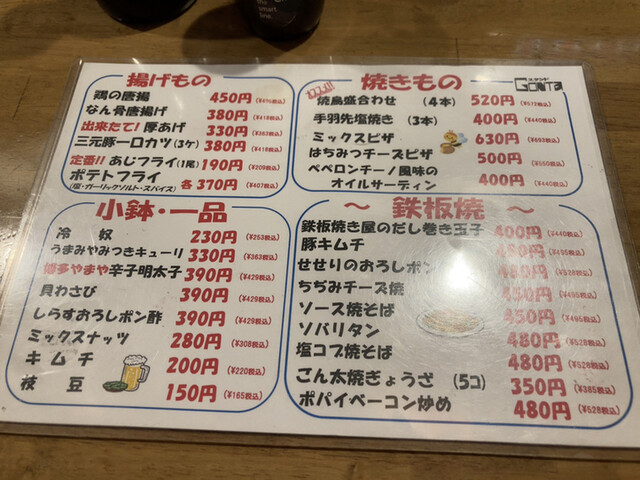 揚げもの
鶏の唐揚 450円 (¥495税込)
なん骨唐揚げ 380円 (¥418税込)
出来たて!厚あげ 330円 (¥363税込)
三元豚一口カツ(3ケ) 380円 (¥418税込)
定番!!あじフライ(1尾) 190円 (¥209税込)
ポテトフライ 各370円 (¥407税込)
(塩・ガーリックソルト・スパイス)
焼きもの
オススメ!!
焼鳥盛合わせ (4本) 520円 (¥572税込)
手羽先塩焼き (3本) 400円 (¥440税込)
ミックスピザ 630円 (¥693税込)
はちみつチーズピザ 500円 (¥550税込)
ペペロンチーノ風味の
オイルサーディン 400円 (¥440税込)
小鉢・一品
冷奴 230円 (¥253税込)
うまみやみつきキューリ 330円 (¥363税込)
博多やまや辛子明太子 390円 (¥429税込)
貝わさび 390円 (¥429税込)
しらすおろしポン酢 390円 (¥429税込)
ミックスナッツ 280円 (¥308税込)
キムチ 200円 (¥220税込)
枝豆 150円 (¥165税込)
～鉄板焼～
鉄板焼き屋のだし巻き玉子 400円 (¥440税込)
豚キムチ 450円 (¥495税込)
せせりのおろしポン 480円 (¥528税込)
ちぢみチーズ焼 450円 (¥495税込)
ソース焼そば 450円 (¥495税込)
ソバリタン 480円 (¥528税込)
塩コブ焼そば 480円 (¥528税込)
ごん太焼きぎょうざ (5コ) 350円 (¥385税込)
ポパイベーコン炒め 480円 (¥528税込)